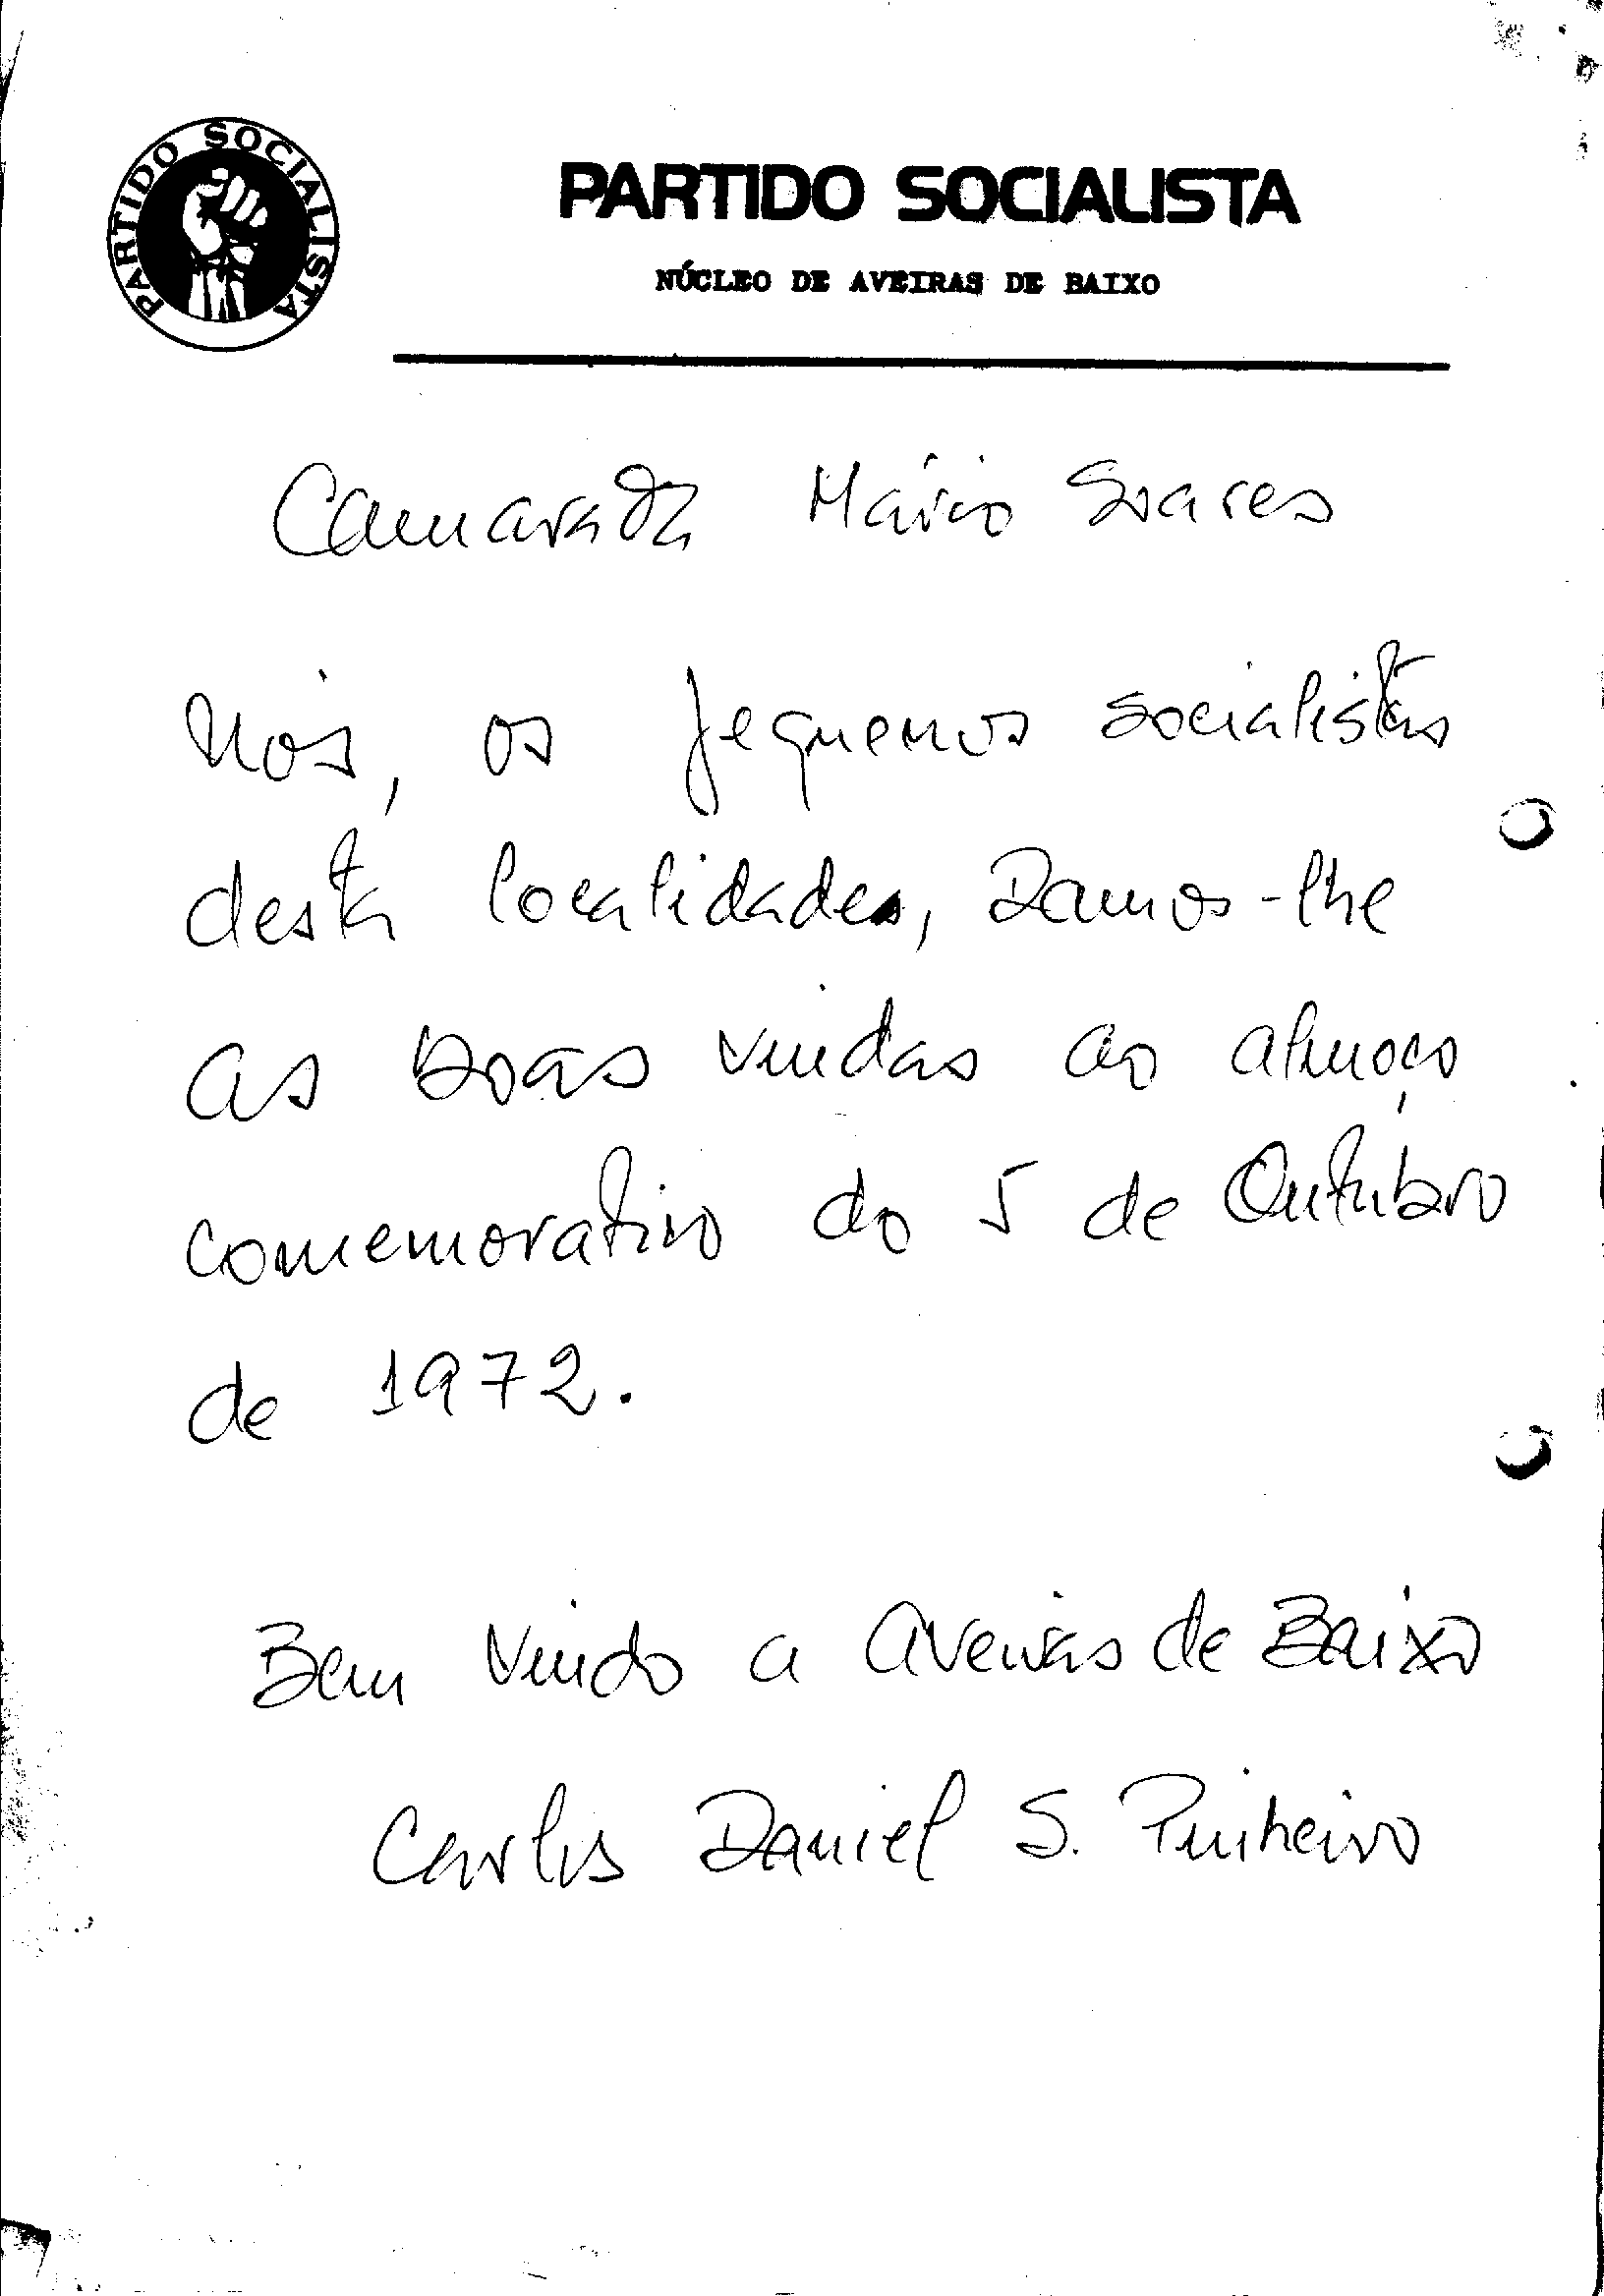 PARTIDO SOCIALISTA
PARTIDO SOCIALISTA
NÚCLEO DE AVEIRAS DE BAIXO
Camarada Mário Soares
Nós, os pequenos socialistas
desta localidade, Damos-lhe
as boas vindas ao almoço
comemorativo do 5 de Outubro
de 1972.
Bem vindo a Aveiras de Baixo
Carlos Daniel S. Pinheiro